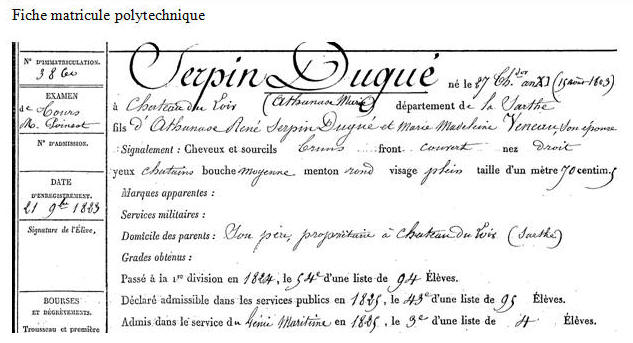 Fiche matricule polytechnique
N° D'IMMATRICULATION.
3860
EXAMEN
de Tours
M. Poinsot
N° D'ADMISSION.
DATE
D'ENREGISTREMENT.
21 9bre 1823
Signature de l'Élève,
BOURSES
ET DÉGRÈVEMENTS.
Trousseau et première
Serpin Dugué né le 27 Th.dor an XI (15 août 1803)
à Chateau du Loir (Athanase Marie) département de la Sarthe
fils d'Athanase René Serpin Dugué et Marie Madeleine Veneau, son épouse
Signalement : Cheveux et sourcils bruns front couvert nez droit
yeux chatains bouche moyenne menton rond visage plein taille d'un mètre 70 centim.s
Marques apparentes :
Services militaires :
Domicile des parents : Son père, propriétaire à Chateau du Loir (Sarthe)
Grades obtenus :
Passé à la 1re division en 1824, le 54e d'une liste de 94 Élèves.
Déclaré admissible dans les services publics en 1825, le 43e d'une liste de 95 Élèves.
Admis dans le service du Génie Maritime en 1825, le 3e d'une liste de 4 Élèves.